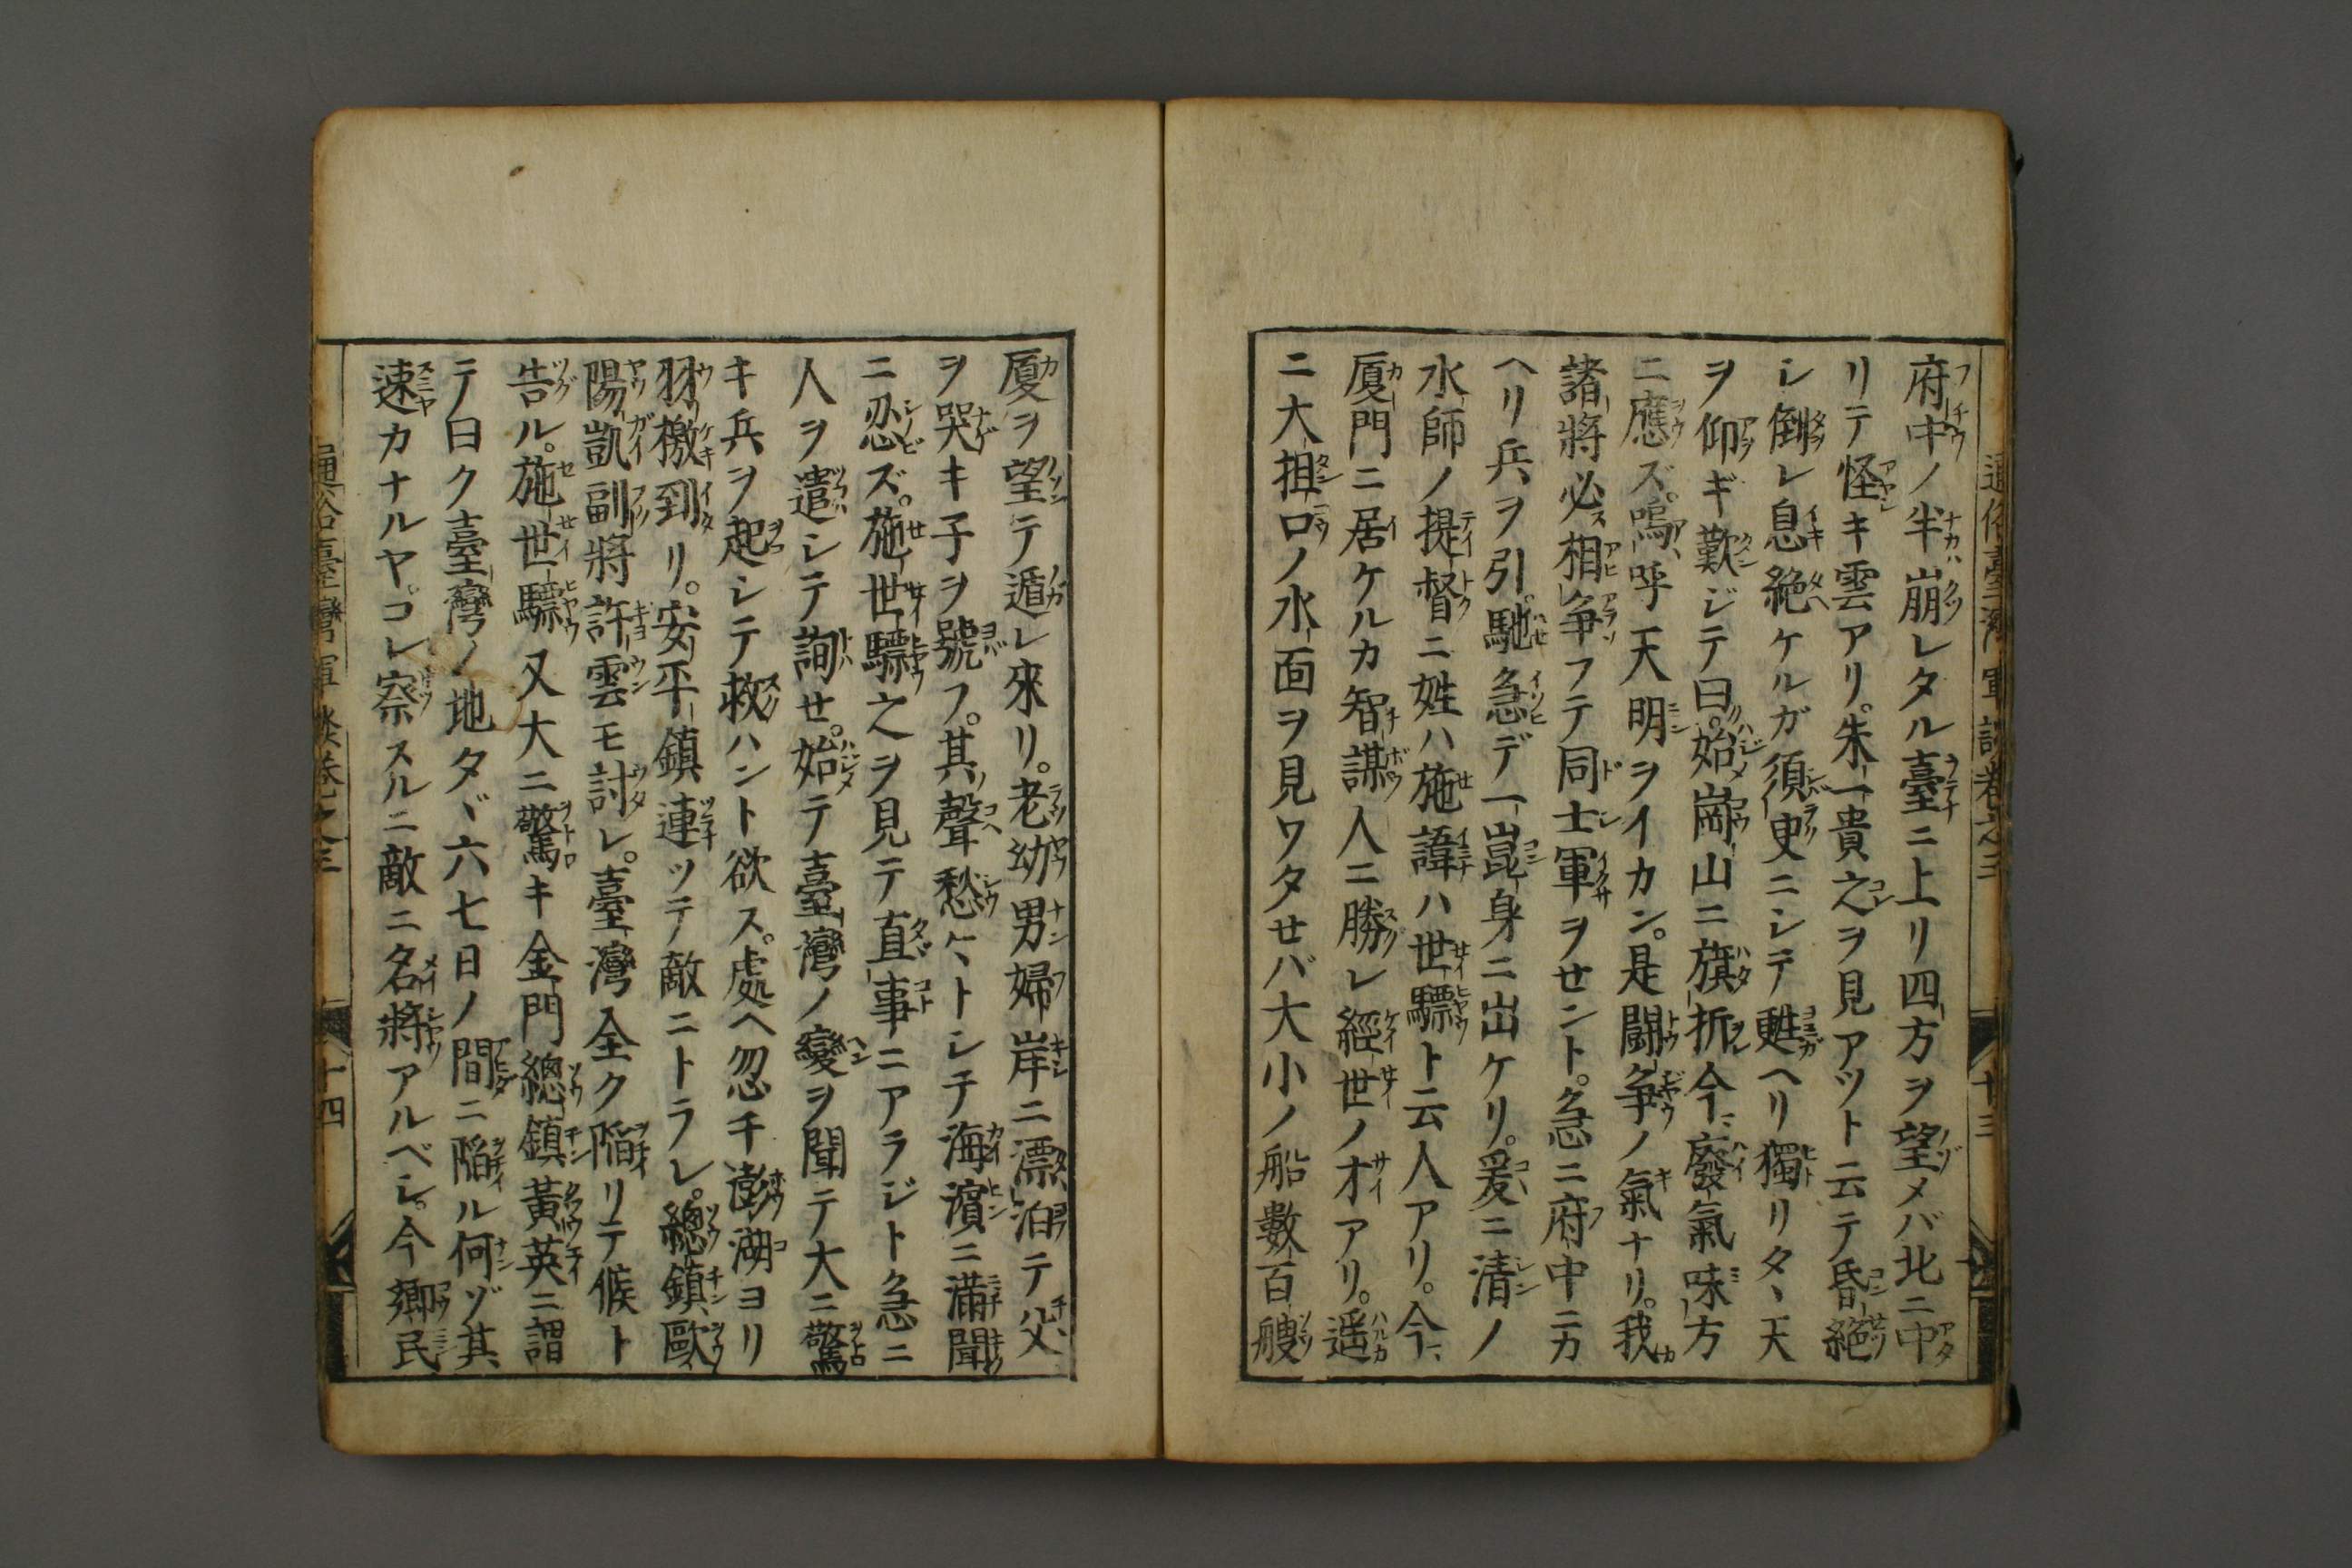 府中ノ半崩レタル臺ニ上リ四方ヲ望メバ北ニ中
リテ怪キ雲アリ。朱一貴之ヲ見アツト云テ昏絶
シ倒レ息絶ケルガ須吏ニシテ甦ヘリ獨リタヽ天
ヲ仰ギ歎ジテ曰。始岡山ニ旗折今廢氣味方
ニ應ズ。嗚呼天明ヲイカン。是闘争ノ氣ナリ。我カ
諸將必相争フテ同士軍ヲセント。急ニ府中ニカ
ヘリ兵ヲ引。馳急デ一崑身ニ出ケリ。爰ニ清ノ
水師ノ提督ニ姓ハ施諱ハ世驃ト云人アリ。今
厦門ニ居ケルカ智謀人ニ勝レ經世ノ才アリ。遥
ニ大担口ノ水面ヲ見ワタセバ大小ノ船數百艘
厦ヲ望テ遁レ來リ。老幼男婦岸ニ漂泊テ父
ヲ哭キ子ヲ號フ。其聲愁ヽトシテ海濱ニ滿聞
ニ忍ビズ。施世驃之ヲ見テ直事ニアラジト急ニ
人ヲ遣シテ詢セ。始テ臺灣ノ變ヲ聞テ大ニ驚
キ兵ヲ起シテ救ハント欲ス。處ヘ忽チ澎湖ヨリ
羽檄到リ。安平鎮連ツテ敵ニトラレ。總鎮歐
陽凱副將許雲モ討レ。臺灣全ク陥リテ候ト
告ル。施世驃又大ニ驚キ金門總鎮黃英ニ謂
テ曰ク臺灣ノ地タヾ六七日ノ間ニ陥ル何ゾ其
速カナルヤ。コレ察スルニ敵ニ名將アルベシ。今鄉民